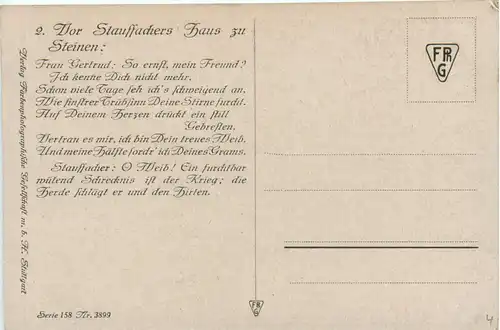 2. Vor Stauffachers Haus zu
Steinen:
Frau Gertrud: So ernst, mein Freund?
Ich kenne Dich nicht mehr.
Schon viele Tage seh ich's schweigend an.
Wie finstrer Trübsinn Deine Stirne furcht.
Auf Deinem Herzen drückt ein still
Gebresten.
Vertrau es mir, ich bin Dein treues Weib,
Und meine Hälfte fordr' ich Deines Grams.
Stauffacher: O Weib! Ein furchtbar
wütend Schrecknis ist der Krieg; die
Herde schlägt er und den Hirten.
Verlag Farbenphotographische Gesellschaft m. b. H., Stuttgart
Serie 158 Nr. 3899
FR
G
FR
G
4